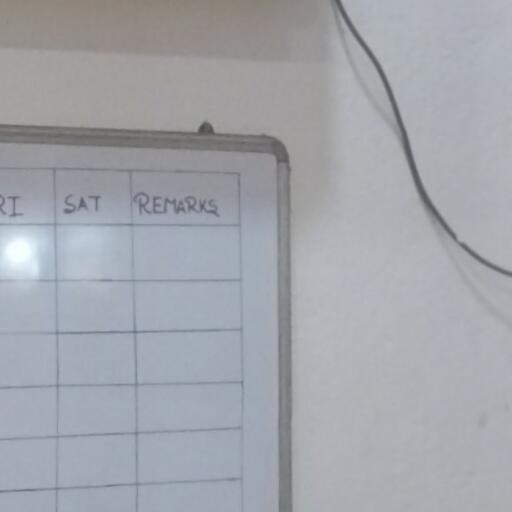 RI SAT REMARKS